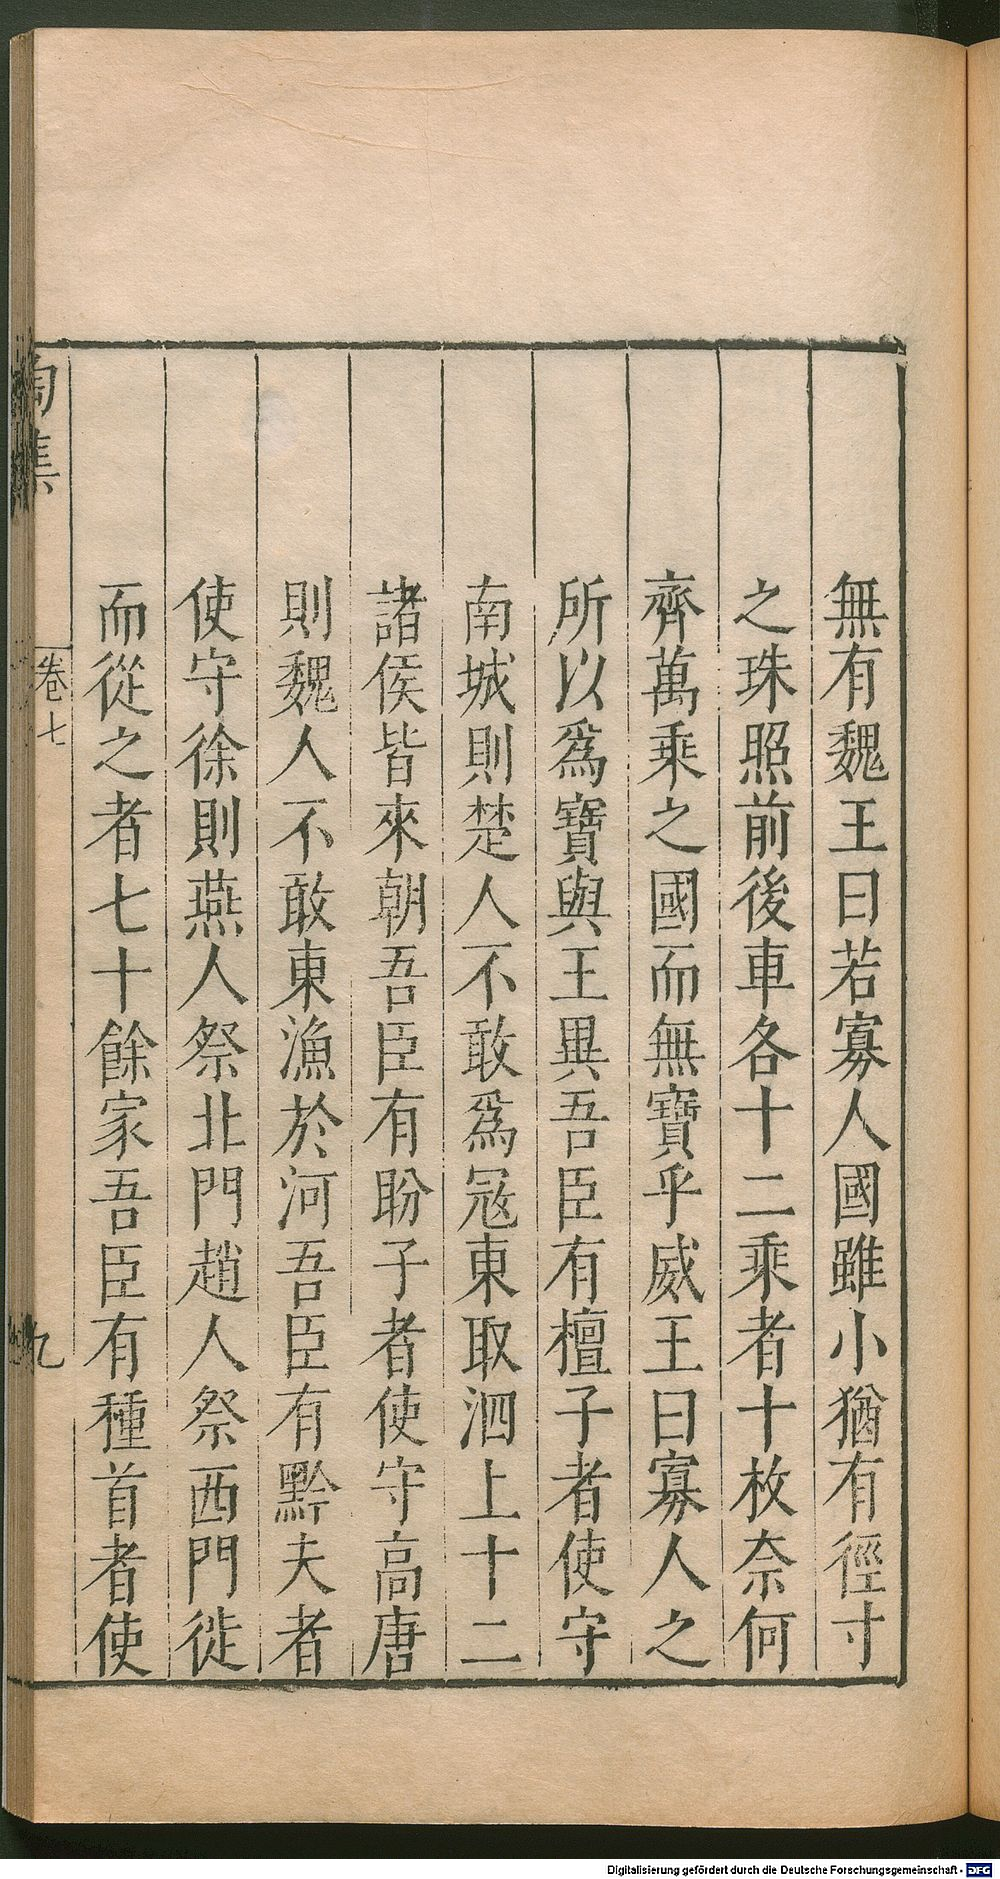 無有魏王曰若寡人國雖小猶有徑寸
之珠照前後車各十二乘者十枚奈何
齊萬乘之國而無寶乎威王曰寡人之
所以爲寶與王異吾臣有檀子者使守
南城則楚人不敢爲冦東取泗上十二
諸侯皆來朝吾臣有盼子者使守高唐
則魏人不敢東漁於河吾臣有黔夫者
使守徐則燕人祭北門趙人祭西門徙
而從之者七十餘家吾臣有種首者使
陶集 卷七 九
Digitalisierung gefördert durch die Deutsche Forschungsgemeinschaft - DFG